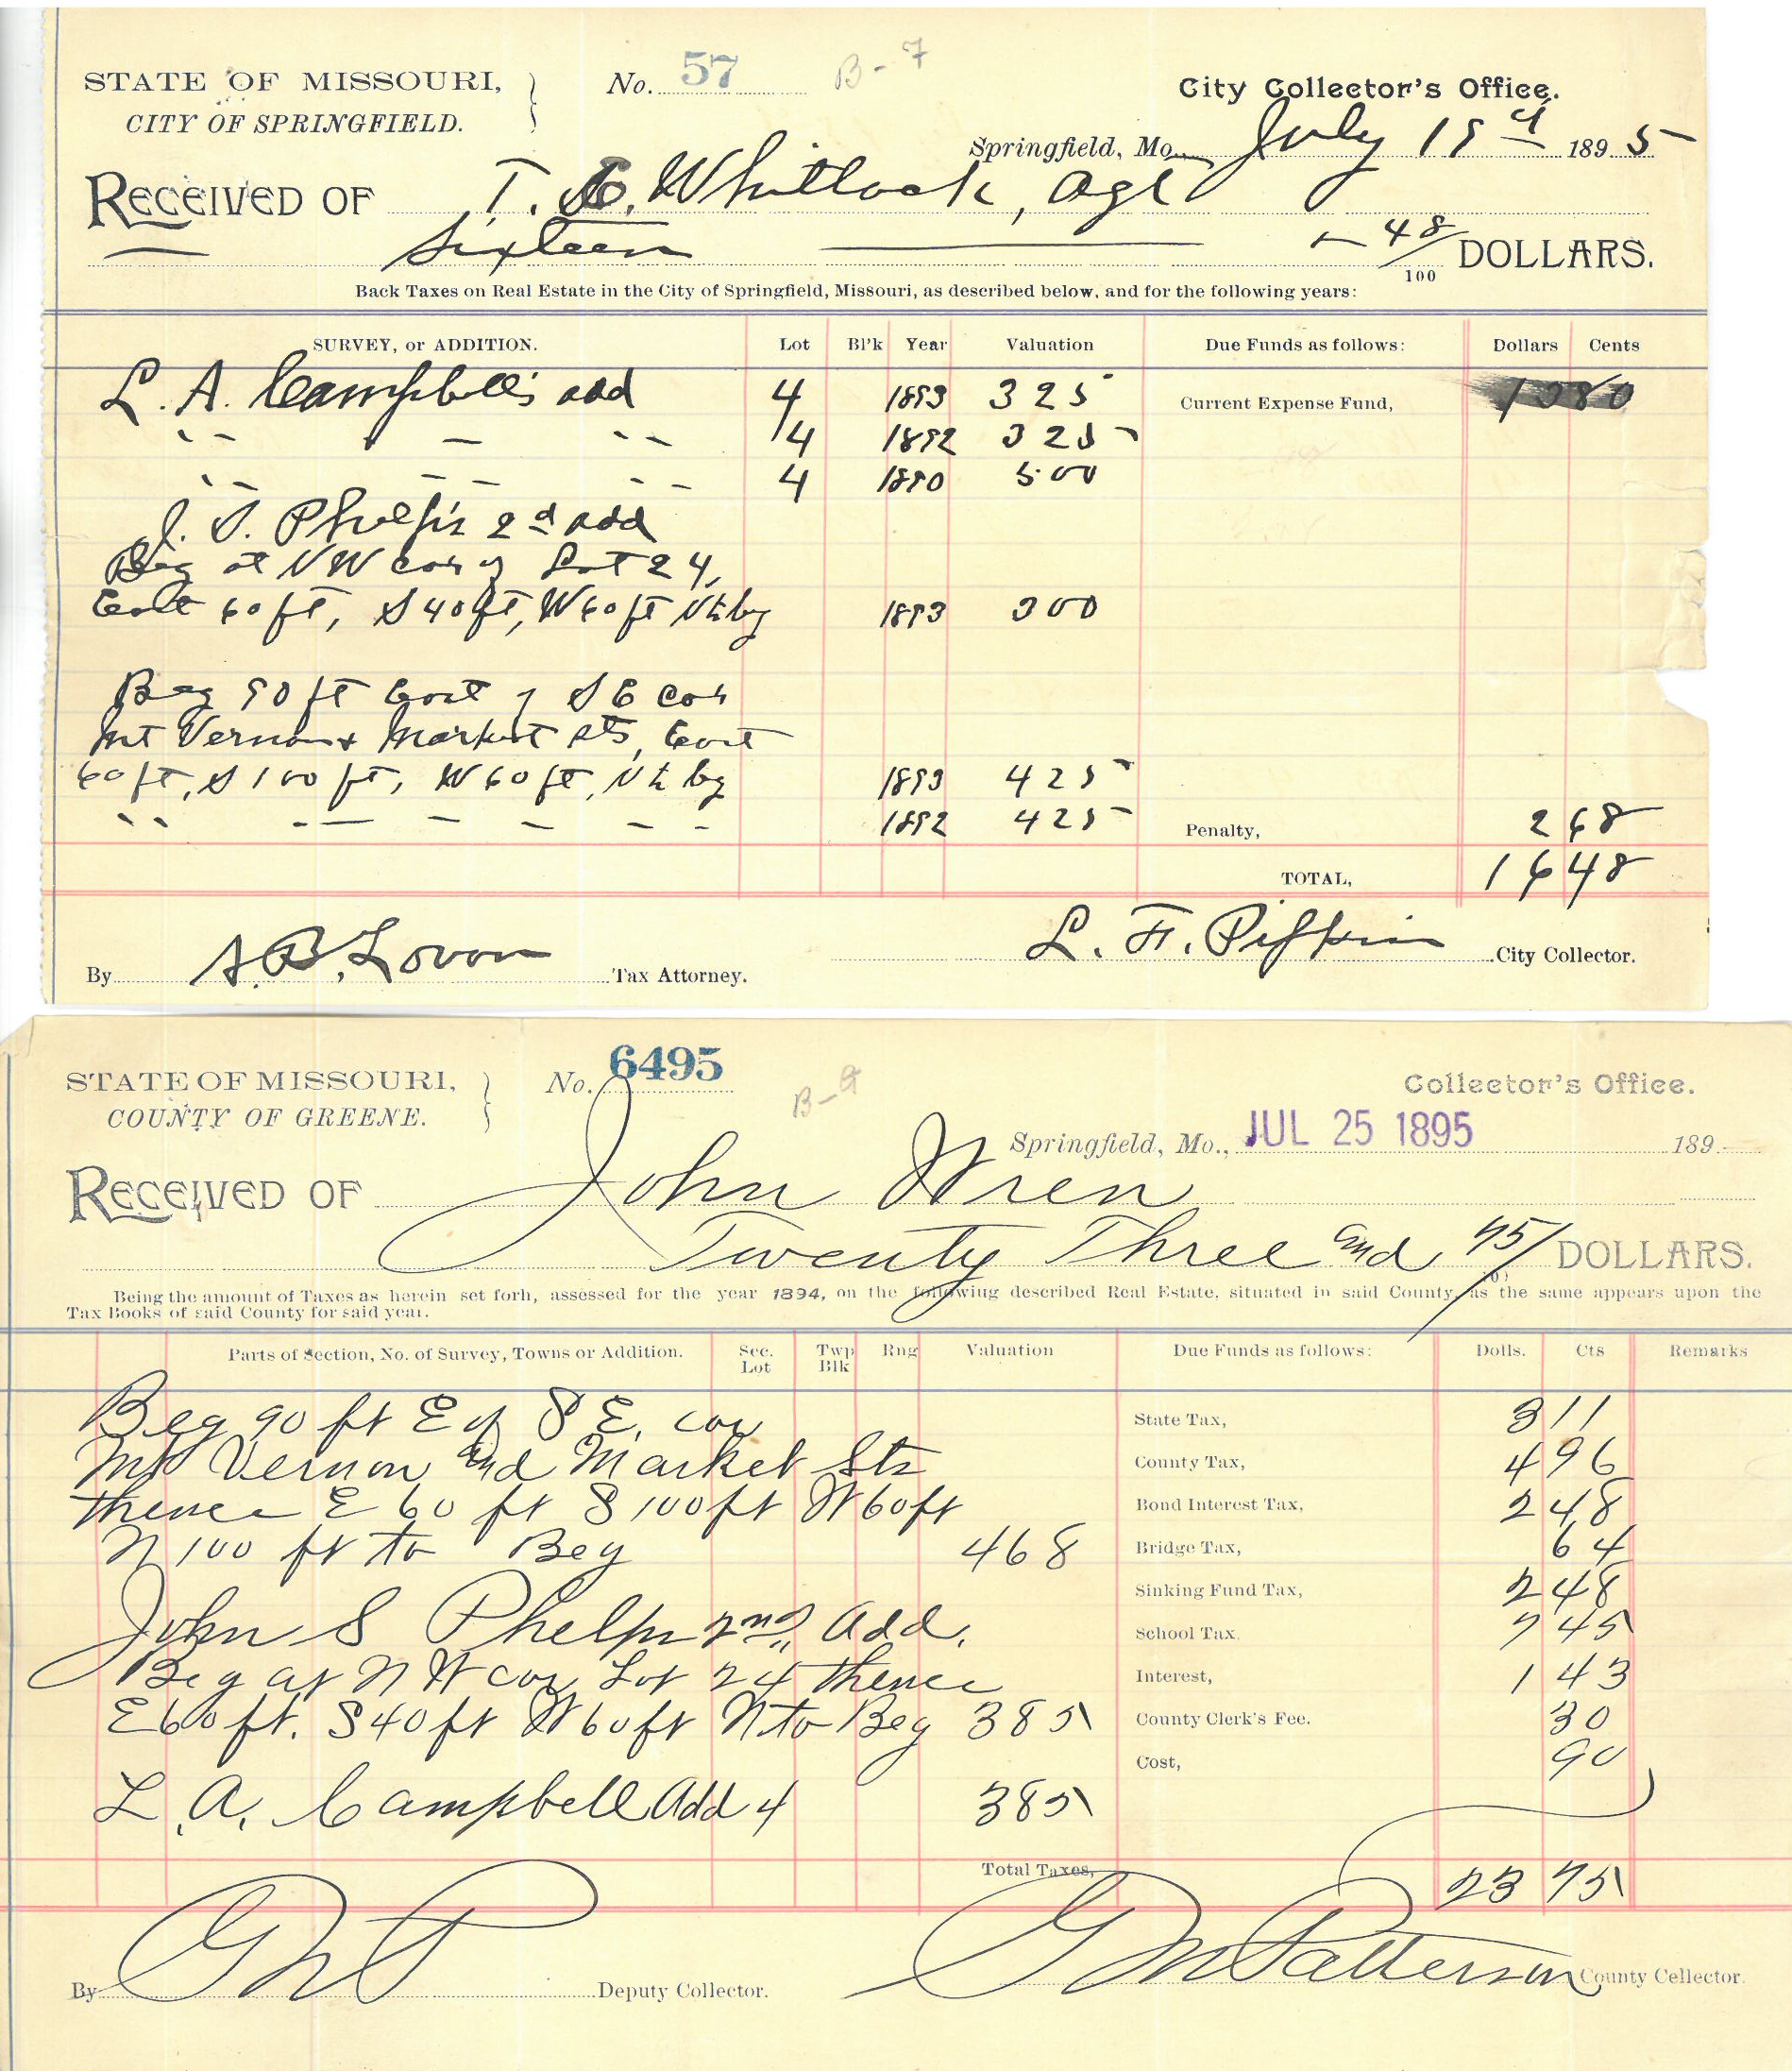 STATE OF MISSOURI,
CITY OF SPRINGFIELD.
No. 57 B-7
City Collector's Office.
Springfield, Mo., July 19th 1895
RECEIVED OF T. C. Whitlock, Agt
Sixteen — 48/100 DOLLARS.
Back Taxes on Real Estate in the City of Springfield, Missouri, as described below, and for the following years:
SURVEY, or ADDITION. Lot Bl'k Year Valuation Due Funds as follows: Dollars Cents
L. A. Campbell's add 4 1893 325 Current Expense Fund, 1380
" — " 4 1892 325
" — " 4 1890 500
J. S. Phelps 2d add
Beg at NW cor of Lot 24,
East 60 ft, S 40 ft, W 60 ft N to beg 1893 300
Beg 90 ft East of S E cor
Mt Vernon & Market Sts, East
60 ft, S 100 ft, W 60 ft, N to beg 1893 425
" — — — — — 1892 425 Penalty, 2 68
TOTAL, 16 48
By Tax Attorney. L. F. Pipkin City Collector.
STATE OF MISSOURI,
COUNTY OF GREENE.
No. 6495
Collector's Office.
Springfield, Mo., JUL 25 1895 189
RECEIVED OF John Wren
Twenty Three and 75/100 DOLLARS.
Being the amount of Taxes as herein set forh, assessed for the year 1894, on the following described Real Estate, situated in said County, as the same appears upon the
Tax Books of said County for said year.
Parts of Section, No. of Survey, Towns or Addition. Sec. Lot Twp Blk Rng Valuation Due Funds as follows: Dolls. Cts Remarks
Beg 90 ft E of S E. cor State Tax, 3 11
Mt Vernon and Market Sts County Tax, 4 96
thence E 60 ft S 100 ft W 60 ft Bond Interest Tax, 2 48
N 100 ft to Beg 468 Bridge Tax, 64
Sinking Fund Tax, 2 48
John S Phelps 2nd Add. School Tax. 7 45
Beg at N W cor Lot 24 thence Interest, 1 43
E 60 ft. S 40 ft W 60 ft N to Beg 385 County Clerk's Fee. 30
Cost, 90
L. A. Campbell Add 4 385
Total Taxes, 23 75
By G M P Deputy Collector. G M Patterson County Collector.